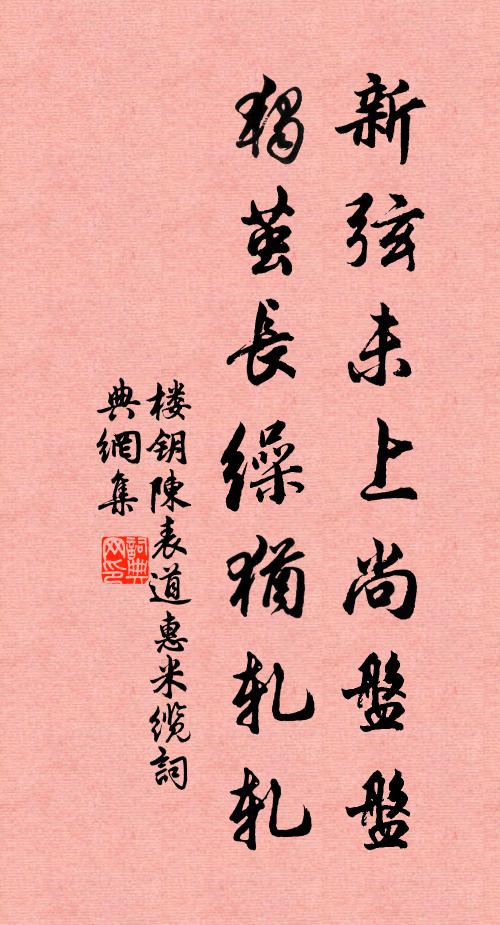 新弦未上尚盤盤
獨茧長繰猶軋軋
楼钥陳表道惠米缆詞
典網集
詞典
网印